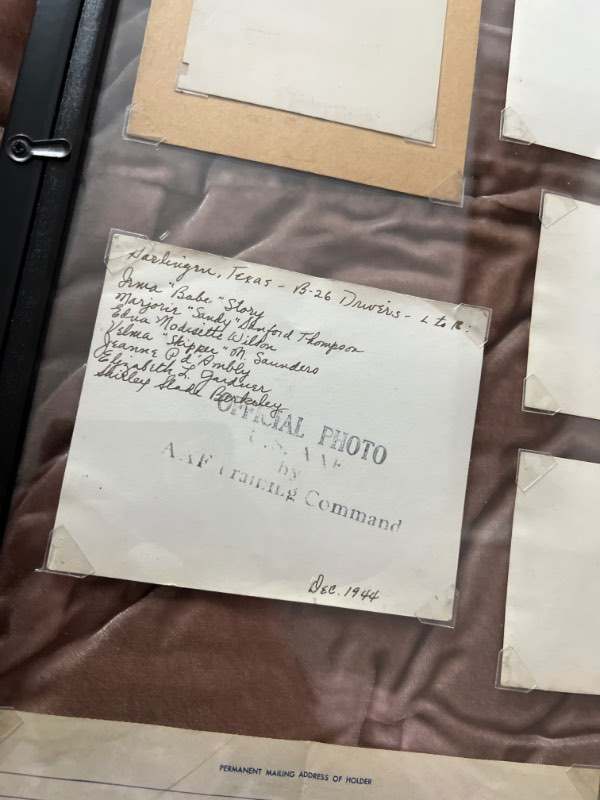 Harlingen, Texas - B-26 Drivers - L to R:
Irma "Babe" Story
Marjorie "Sandy" Sanford Thompson
Edna Modisette Wilson
Velma "Skipper" M. Saunders
Jeanne P. d'Ambly
Elizabeth L. Gardner
Shirley Slade Berkeley
OFFICIAL PHOTO
U.S. AAF
by
AAF Training Command
Dec. 1944
PERMANENT MAILING ADDRESS OF HOLDER